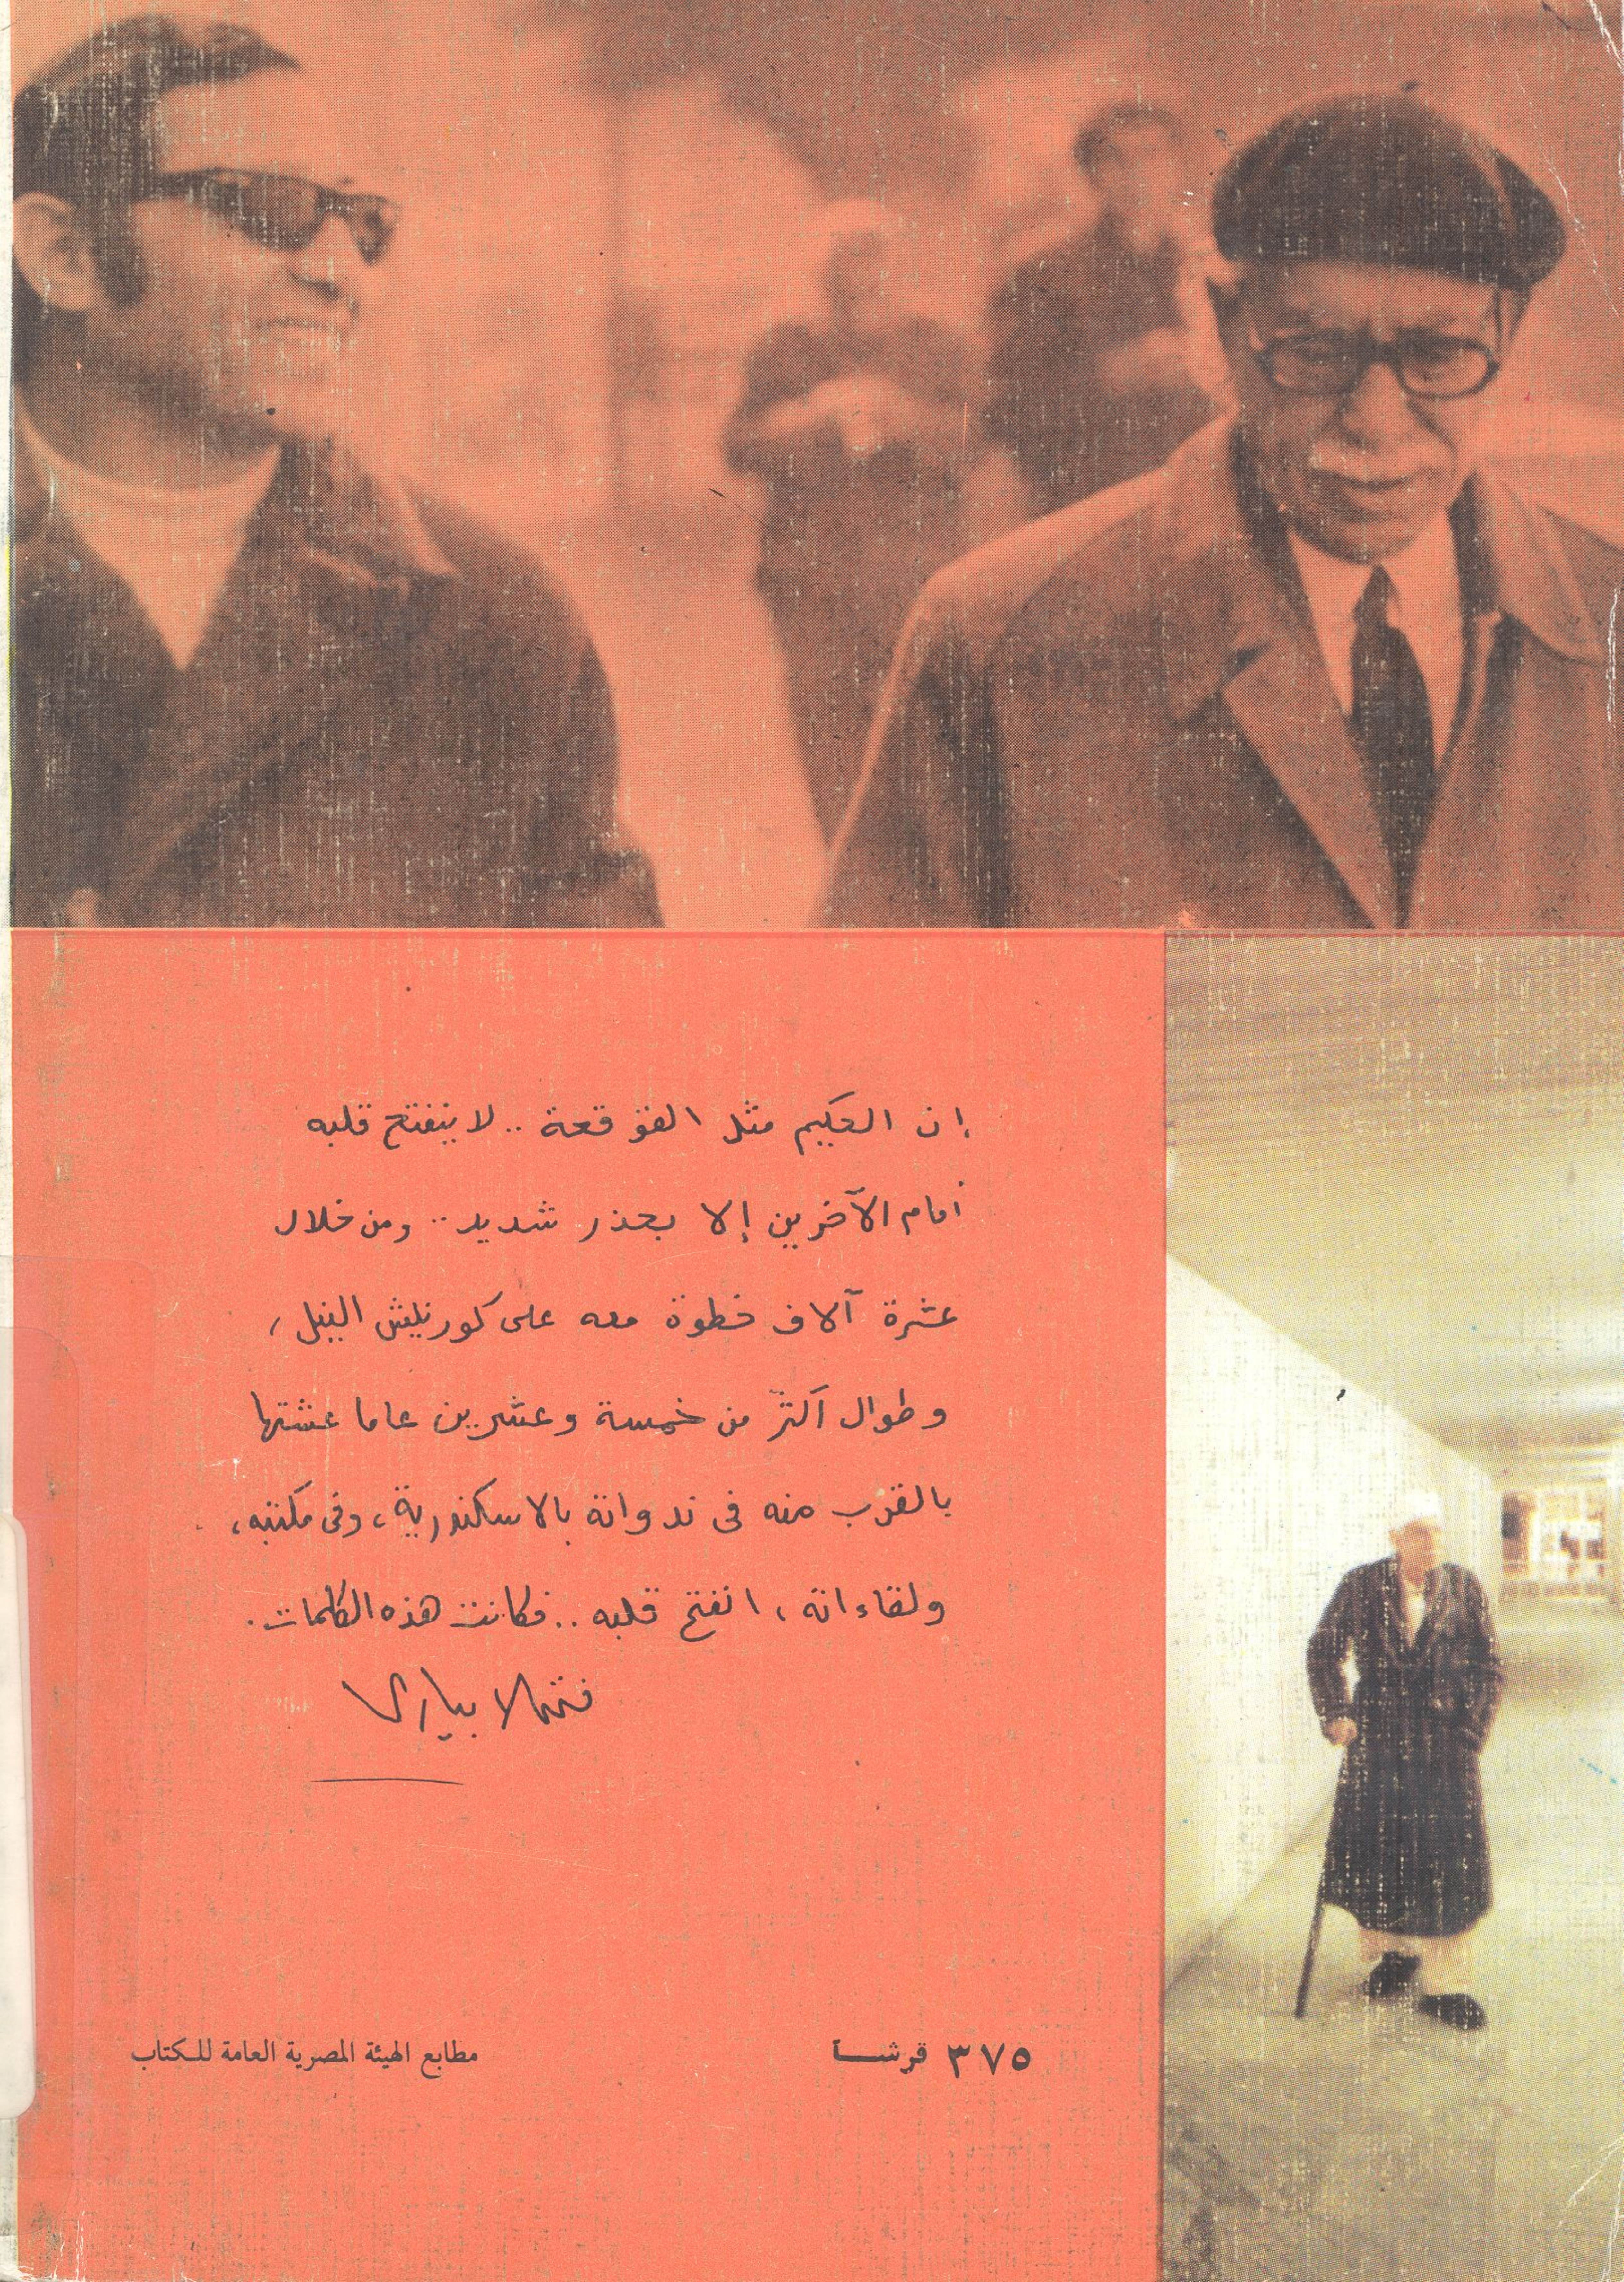 إن الحكيم مثل القوقعة .. لا ينفتح قلبه
أمام الآخرين إلا بحذر شديد .. ومن خلال
عشرة آلاف خطوة معه على كورنيش النيل ،
وطوال أكثر من خمسة وعشرين عاما عشتها
بالقرب منه فى ندواته بالاسكندرية ، وفى مكتبه ،
ولقاءاته ، انفتح قلبه .. فكانت هذه الكلمات .
فتحى الابيارى
٣٧٥ قرشـــا
مطابع الهيئة المصرية العامة للكتاب